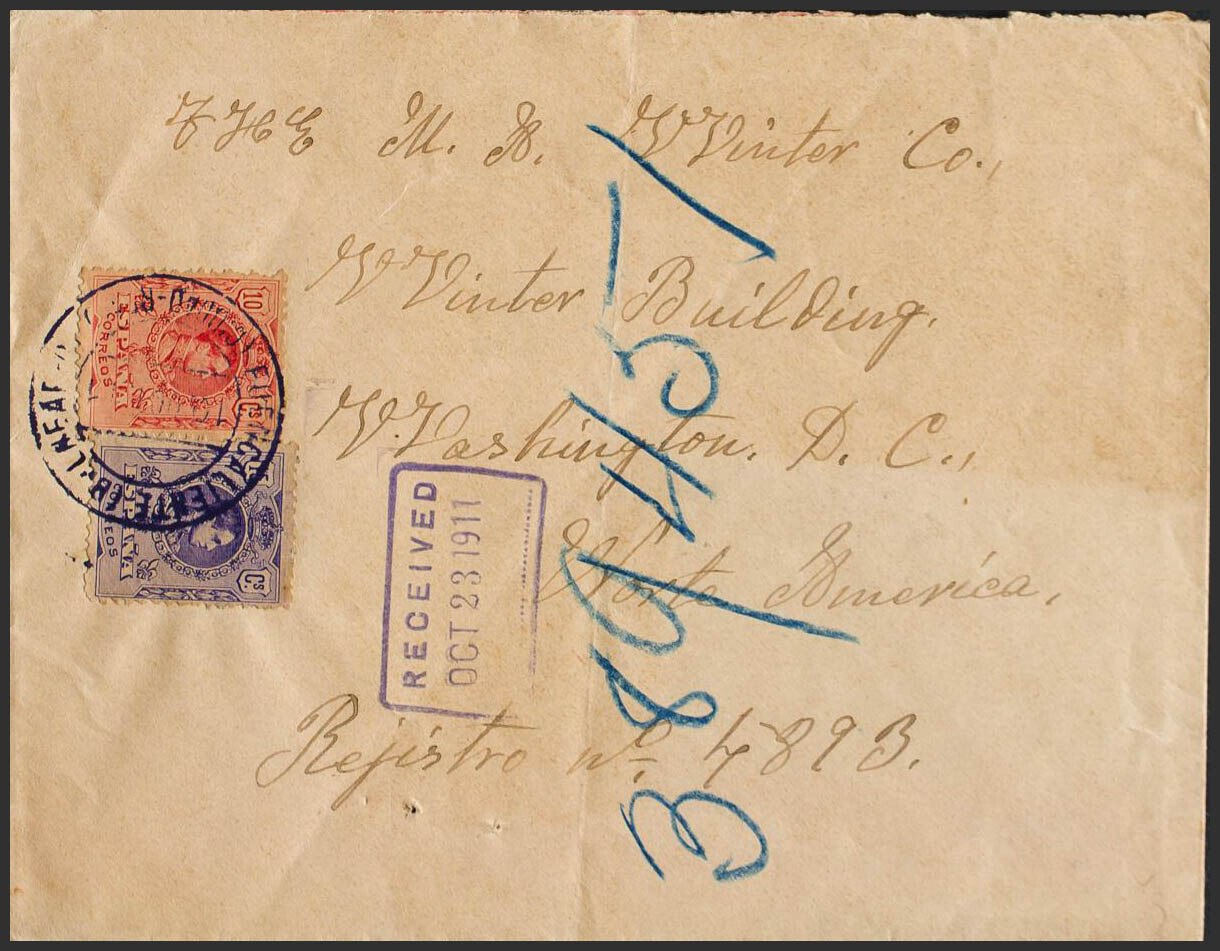 THE M. A. Winter Co.,
Winter Building.
Washington. D. C.,
Norte América,
Rejistro nº 4893.
RECEIVED
OCT 23 1911
10
Cs
ESPAÑA
CORREOS
Cs
ESPAÑA